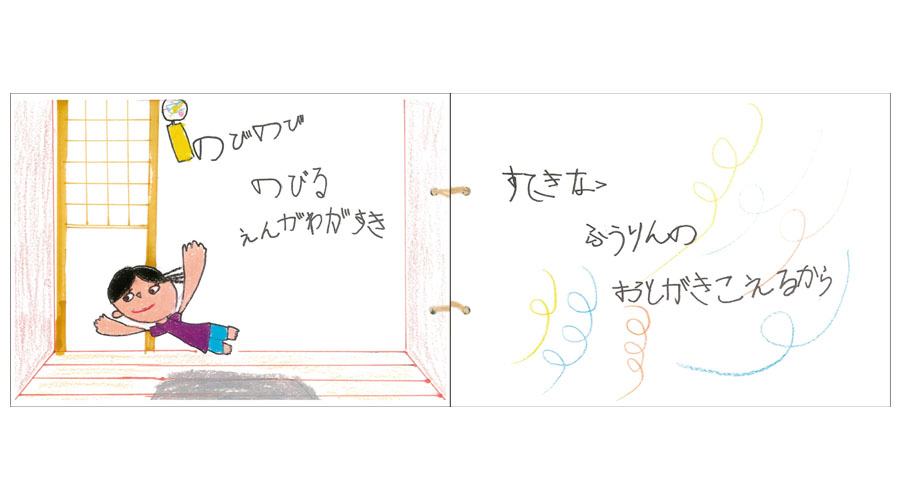 のびのび
のびる
えんがわがすき
すてきな
ふうりんの
おとがきこえるから